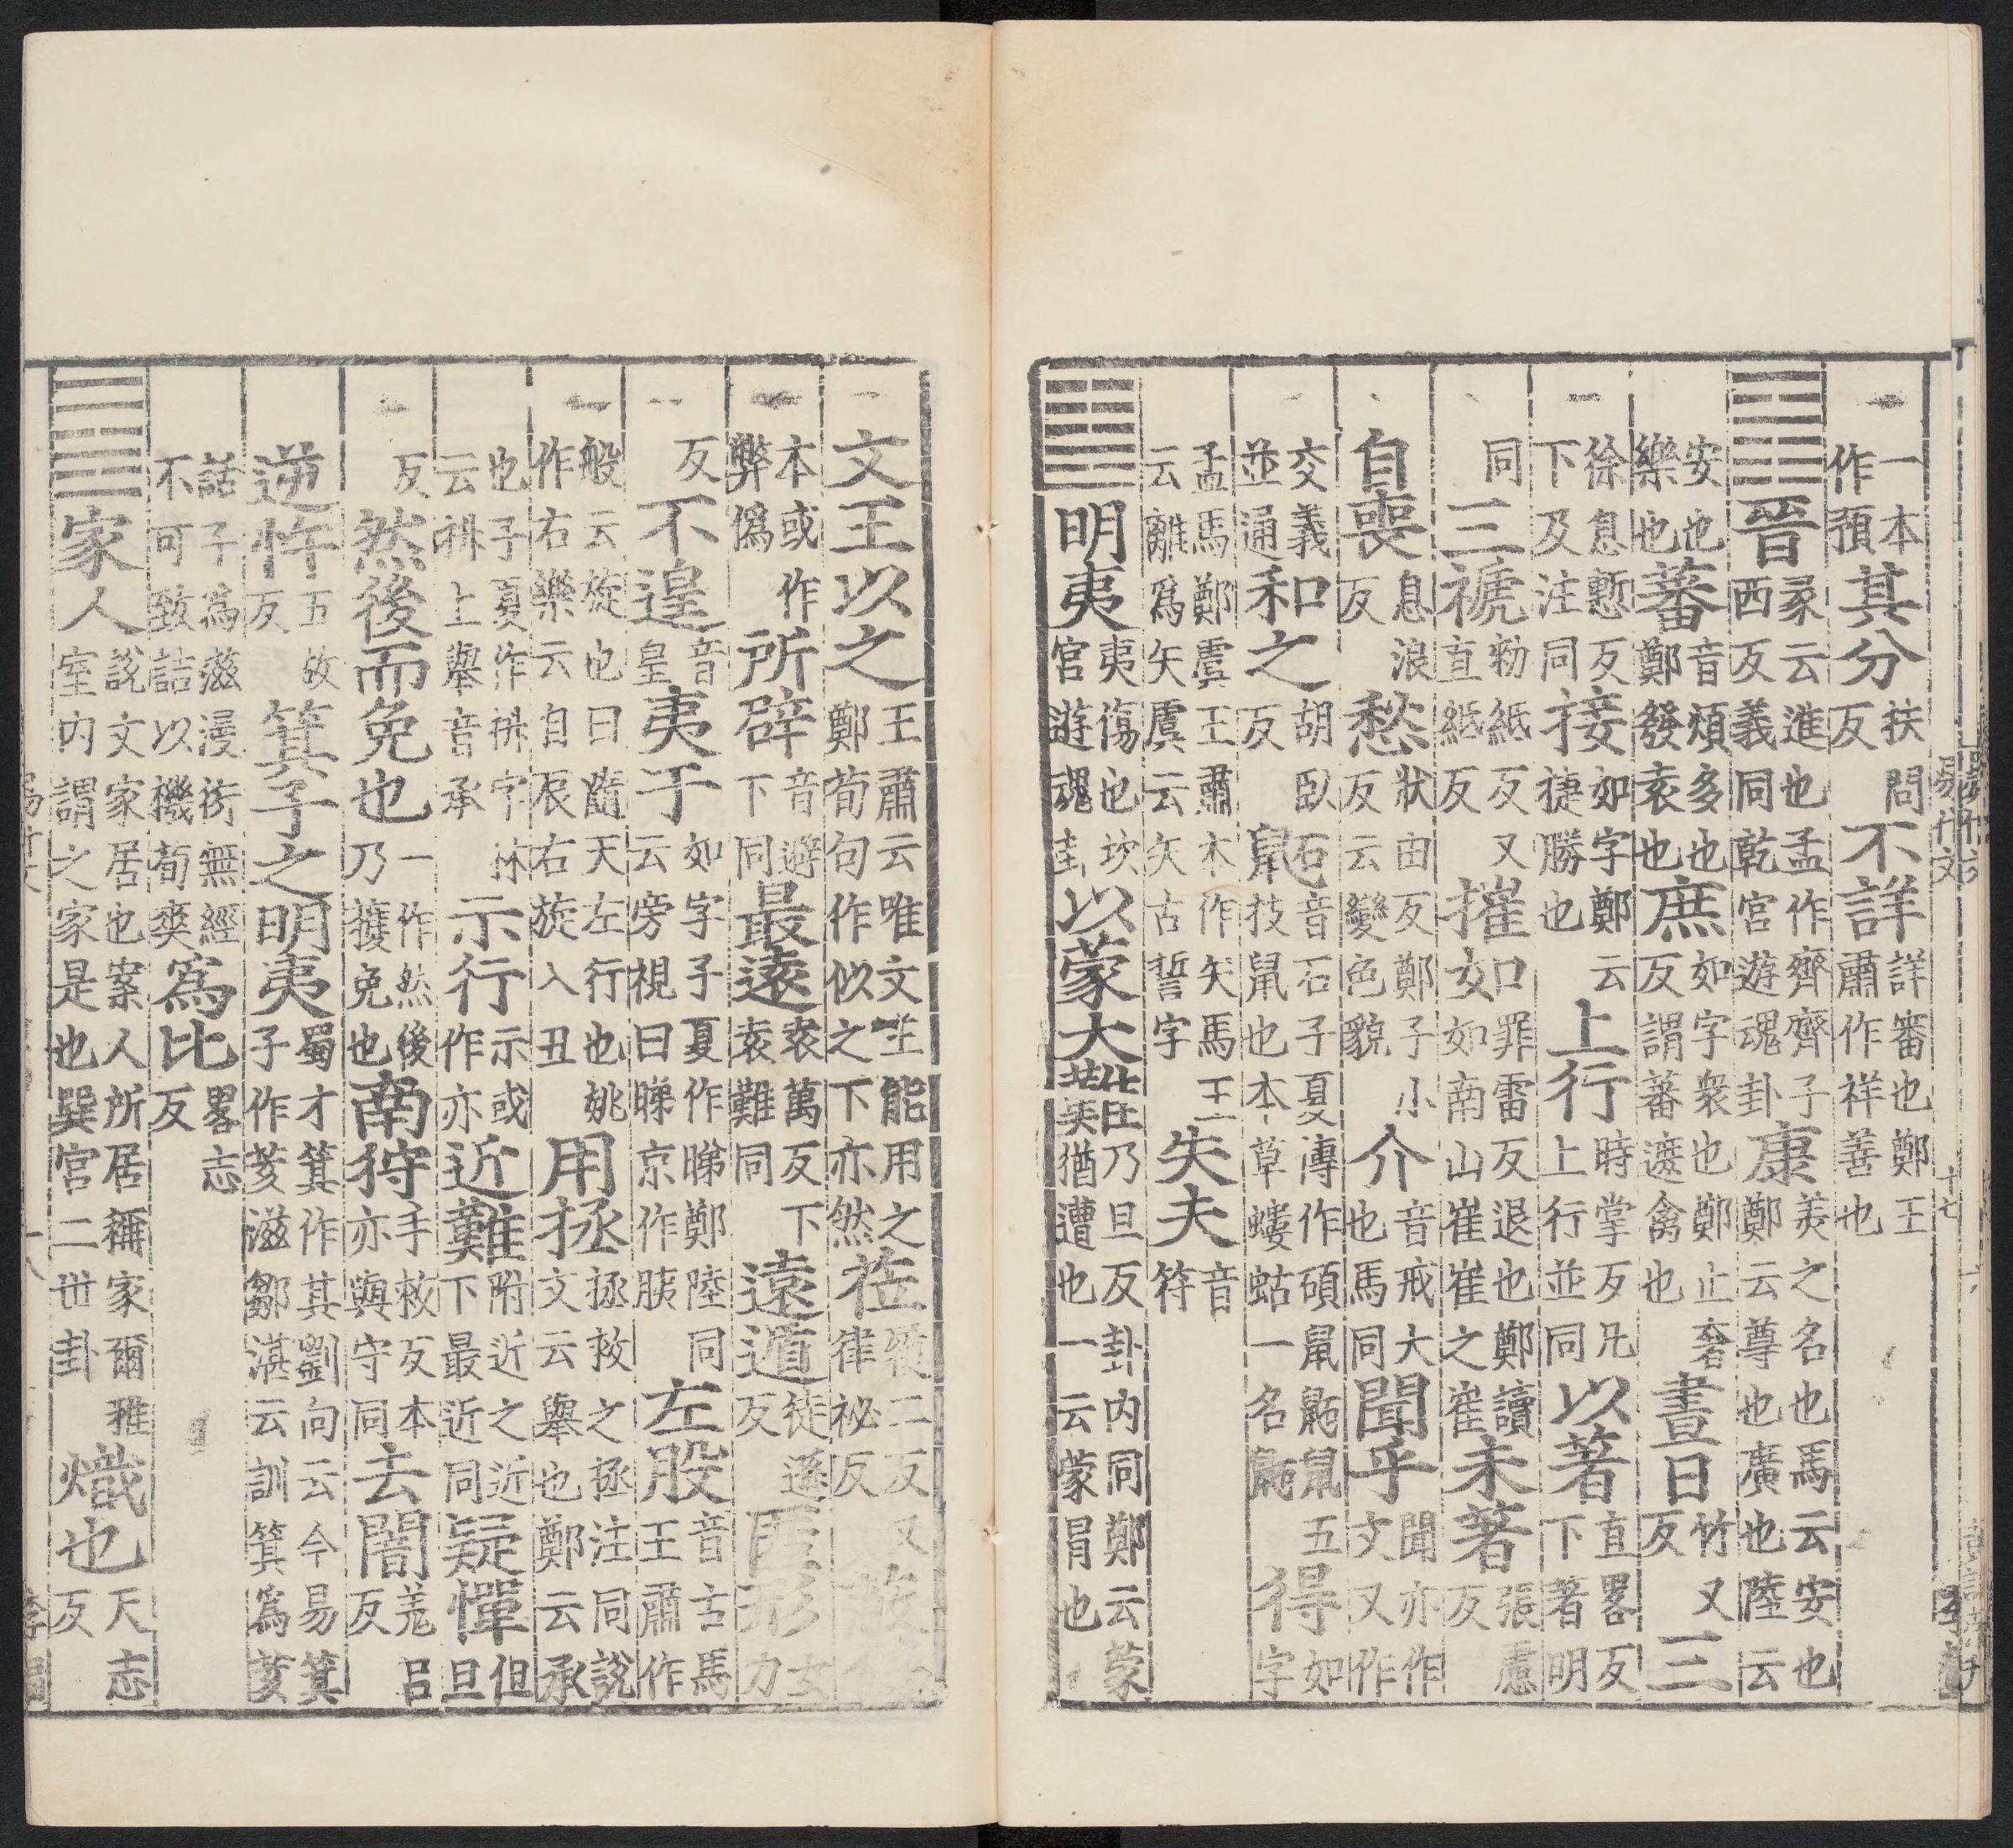 一本作預其分扶問反不詳詳審也鄭王肅作祥善也
晉彖云進也孟作齊齊子西反義同乾宮遊魂卦康美之名也馬云安也鄭云尊也廣也陸云
安也樂也蕃音煩多也鄭發袁也庶如字衆也鄭止奢反謂蕃遮禽也晝日竹又反三
徐息慙反下及注同接如字鄭云捷勝也上行時掌反凡上行並同以著直畧反下著明
同三褫勑紙反又直紙反摧如罪雷反退也鄭讀如南山崔崔之崔未著張慮反
自喪息浪反愁狀由反鄭子小反云變色貌介音戒大也馬同聞乎聞亦作文又作
交義並通和之胡臥反鼫石音石子夏傳作碩鼠鼫鼠五技鼠也本草螻蛄一名鼫得如字
孟馬鄭虞王肅本作矢馬王云離爲矢虞云矢古誓字失夫音符
明夷夷傷也坎宮遊魂卦以蒙大乃旦反卦內同鄭云蒙猶遭也一云蒙冒也
文王以之王肅云唯文王能用之鄭荀句作似之下亦然莅履二反又律祕反
本或作弊僞所辟音避下同最遠袁萬反下袁難同遠遁徒遜反匿形女力
反不遑音皇夷于如字子夏作睇鄭陸同云旁視曰睇京作胰左股音古馬王肅作
般云旋也日隨天左行也姚作右槃云自辰右旋入丑用拯拯救之拯注同說文云舉也鄭云承
也子夏作抍字林云抍上舉音承示行示或作亦近難附近之近下最近同疑憚但旦
反然後而免也一作然後乃獲免也南狩手救反本亦與守同去闇羌呂反
逆忤五故反箕子之明夷蜀才箕作其劉向云今易箕子作荄滋鄒湛云訓箕爲荄
詁子爲滋漫衍無經不可致詰以機荀爽爲比畧志反
家人說文家居也案人所居稱家爾雅室內謂之家是也巽宮二世卦熾也天志反